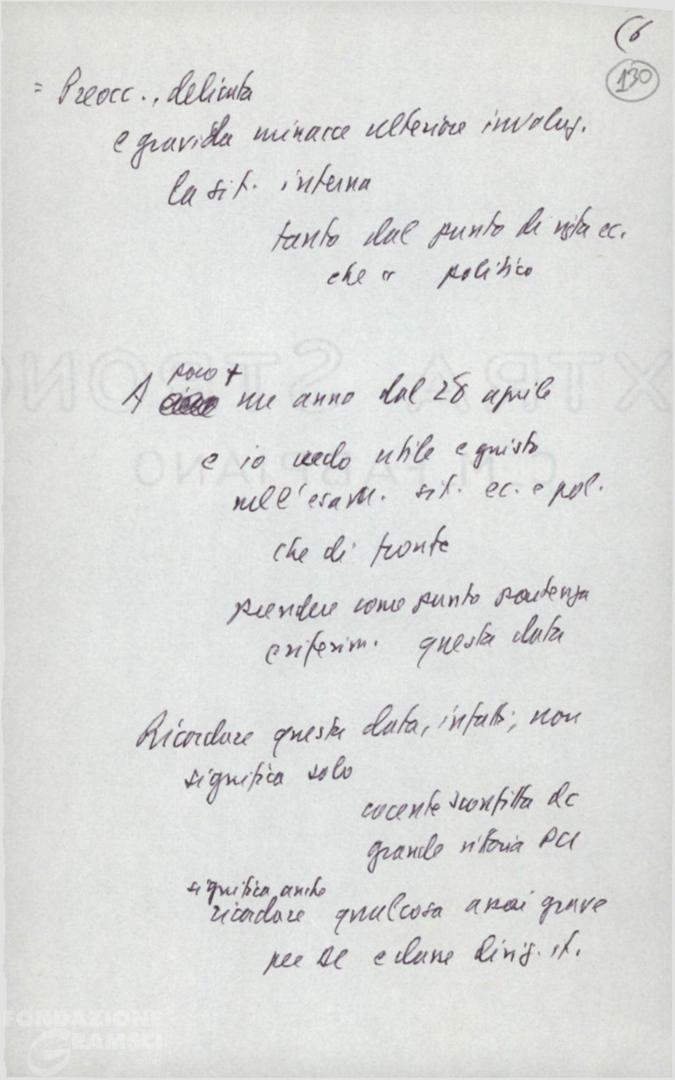 (6
130
= Preocc., delicata
e gravida minacce ulteriore involuz.
la sit. interna
tanto dal punto di vista ec.
che politico
poco +
A un anno dal 28 aprile
e io credo utile e giusto
nell'esam. sit. ec. e pol.
che di fronte
prendere come punto partenza
e riferim. questa data
Ricordare questa data, infatti, non
significa solo
cocente sconfitta dc
grande vittoria PCI
significa anche
ricordare qualcosa assai grave
per e classe dirig. it.
FONDAZIONE
GRAMSCI